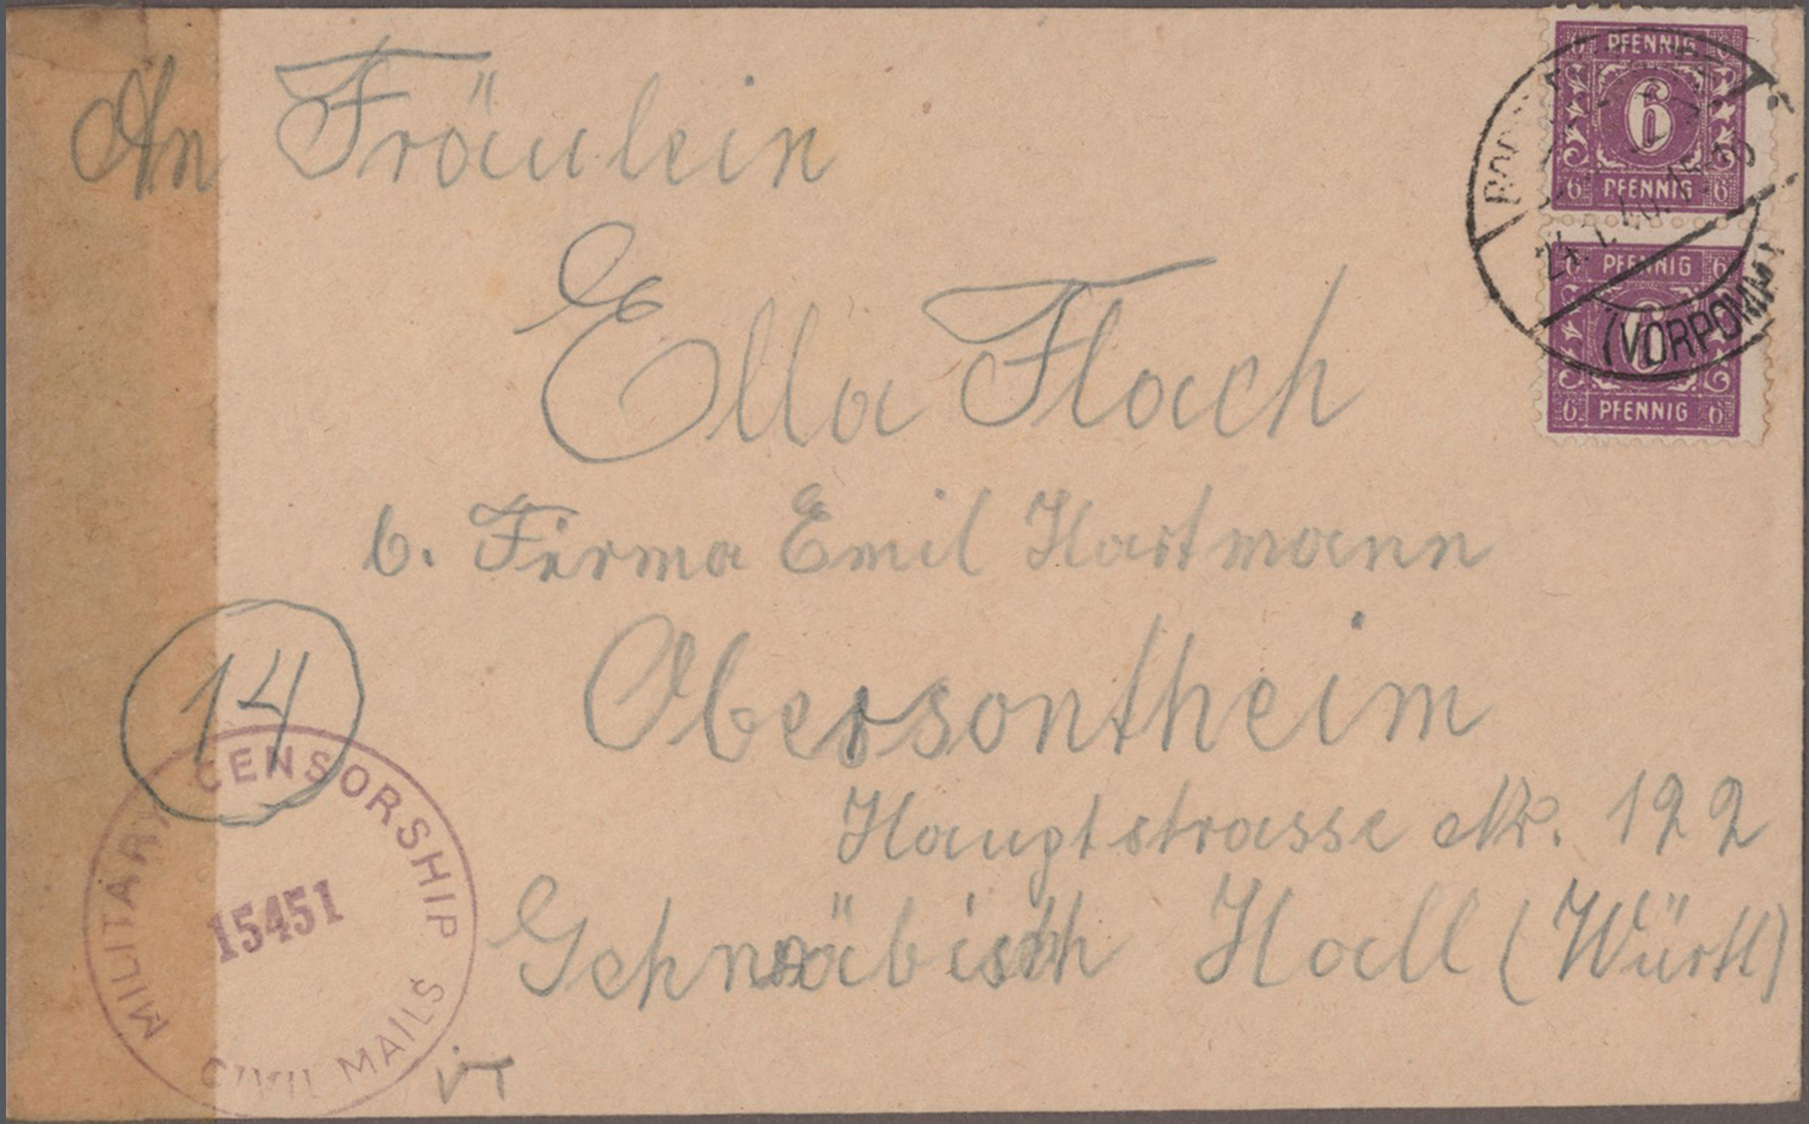 An Fräulein
Ella Flach
b. Firma Emil Hartmann
Obersontheim
Hauptstrasse Nr. 122
Schwäbisch Hall (Württ)
14
MILITARY CENSORSHIP
15451
CIVIL MAILS
6 PFENNIG 6
6
6 PFENNIG 6
(VORPOMM)
6 PFENNIG 6
6
6 PFENNIG 6